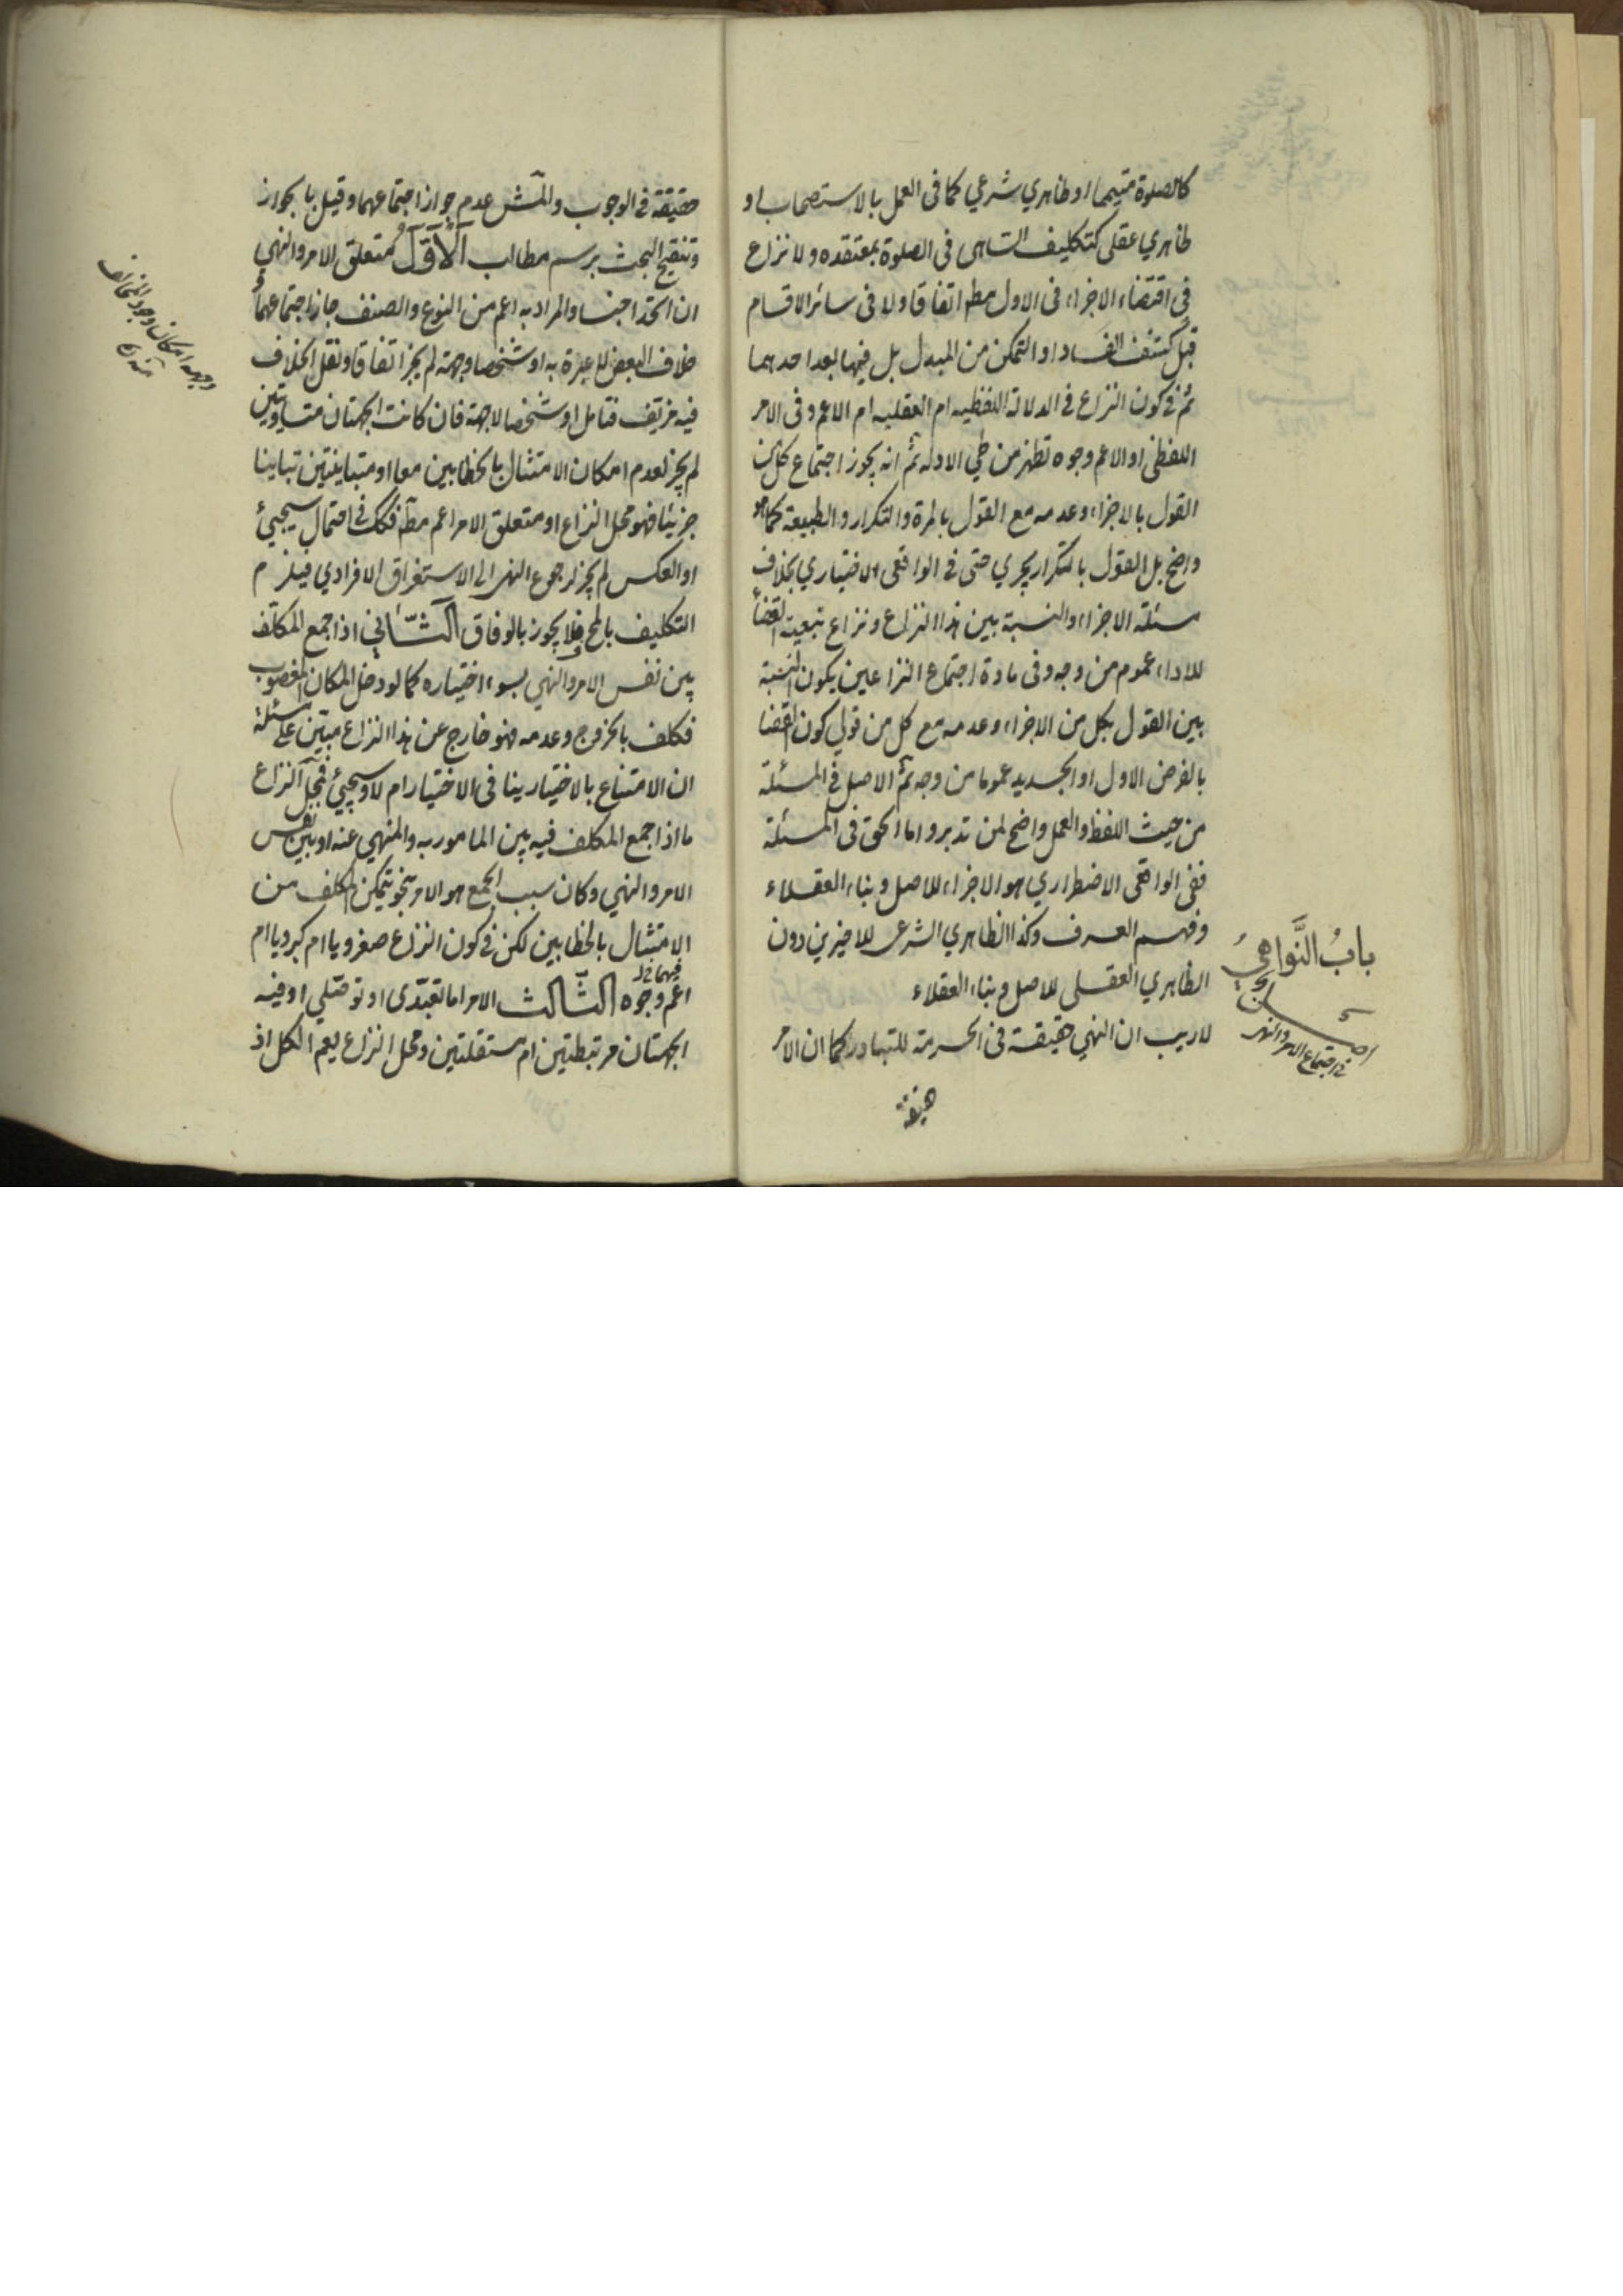 كالصلوة متيمما او ظاهري شرعي كما فى العمل بالاستصحاب او
ظاهري عقلى كتكليف الساهى فى الصلوة بمعتقده ولا نزاع
فى اقتضاء الاجزاء فى الاول مطم اتفاقا ولا فى سائر الاقسام
قبل كشف الفساد او التمكن من المبدل بل فيها بعد احدهما
ثم فى كون النزاع فى الدلالة اللفظيه ام العقليه ام الاعم وفى الامر
اللفظى او الاعم وجوه تظهر من طي الادلة ثم انه يجوز اجتماع كل من
القول بالاجزاء وعدمه مع القول بالمرة والتكرار والطبيعة كما هو
واضح بل القول بالتكرار يجري حتى فى الواقعى الاختياري بخلاف
مسئلة الاجزاء والنسبة بين هذا النزاع ونزاع تبعية القضاء
للاداء عموم من وجه وفى مادة اجتماع النزاعين يكون النسبة
بين القول بكل من الاجزاء وعدمه مع كل من قولي كون القضا
بالفرض الاول او الجديد عموما من وجه ثم الاصل فى المسئلة
من حيث اللفظ والعمل واضح لمن تدبر واما الحق فى المسئلة
ففى الواقعى الاضطراري هو الاجزاء للاصل وبناء العقلاء
وفهم العرف وكذا الظاهري الشرعى للاخيرين دون
الظاهري العقلى للاصل وبناء العقلاء
باب النواهي
اصل
فى اجتماع الامر والنهى
لا ريب ان النهي حقيقة فى الحرمة للتبادر كما ان الامر
حقيقة
حقيقة فى الوجوب والمش عدم جواز اجتماعهما وقيل بالجواز
وتنقيح البحث برسم مطالب الاول متعلق الامر والنهي
ان اتحد اجنسا والمراد به اعم من النوع والصنف جاز اجتماعهما
خلاف البعض للاعبرة به او شخصا وجهة لم يجز اتفاقا ونقل الخلاف
فيه مزيف فتامل او شخصا لا جهة فان كانت الجهتان متساويتين
لم يجز لعدم امكان الامتثال بالخطابين معا او متباينتين تباينا
جزئيا فهو محل النزاع او متعلق الامر اعم مطه فكك فى احتمال سيجيئ
او العكس لم يجز لرجوع النهى الى الاستغراق الافرادي فيلزم
التكليف بالمح فلا يجوز بالوفاق الثاني اذا جمع المكلف
بين نفس الامر والنهي بسوء اختياره كما لو دخل المكان المغصوب
فكلف بالخروج وعدمه فهو خارج عن هذا النزاع مبتن على مسئلة
ان الامتناع بالاختيار ينافى الاختيار ام لا وسيجيئ فمحل النزاع
ما اذا جمع المكلف فيه بين المامور به والمنهي عنه او بين نفس
الامر والنهي وكان سبب الجمع هو الامر بنحو يتمكن المكلف من
الامتثال بالخطابين لكن فى كون النزاع صغرويا ام كبرويا ام
اعم وجوه الثالث الامر اما تعبدى او توصلي او فيه
الجهتان مرتبطتين ام مستقلتين ومحل النزاع يعم الكل اذ